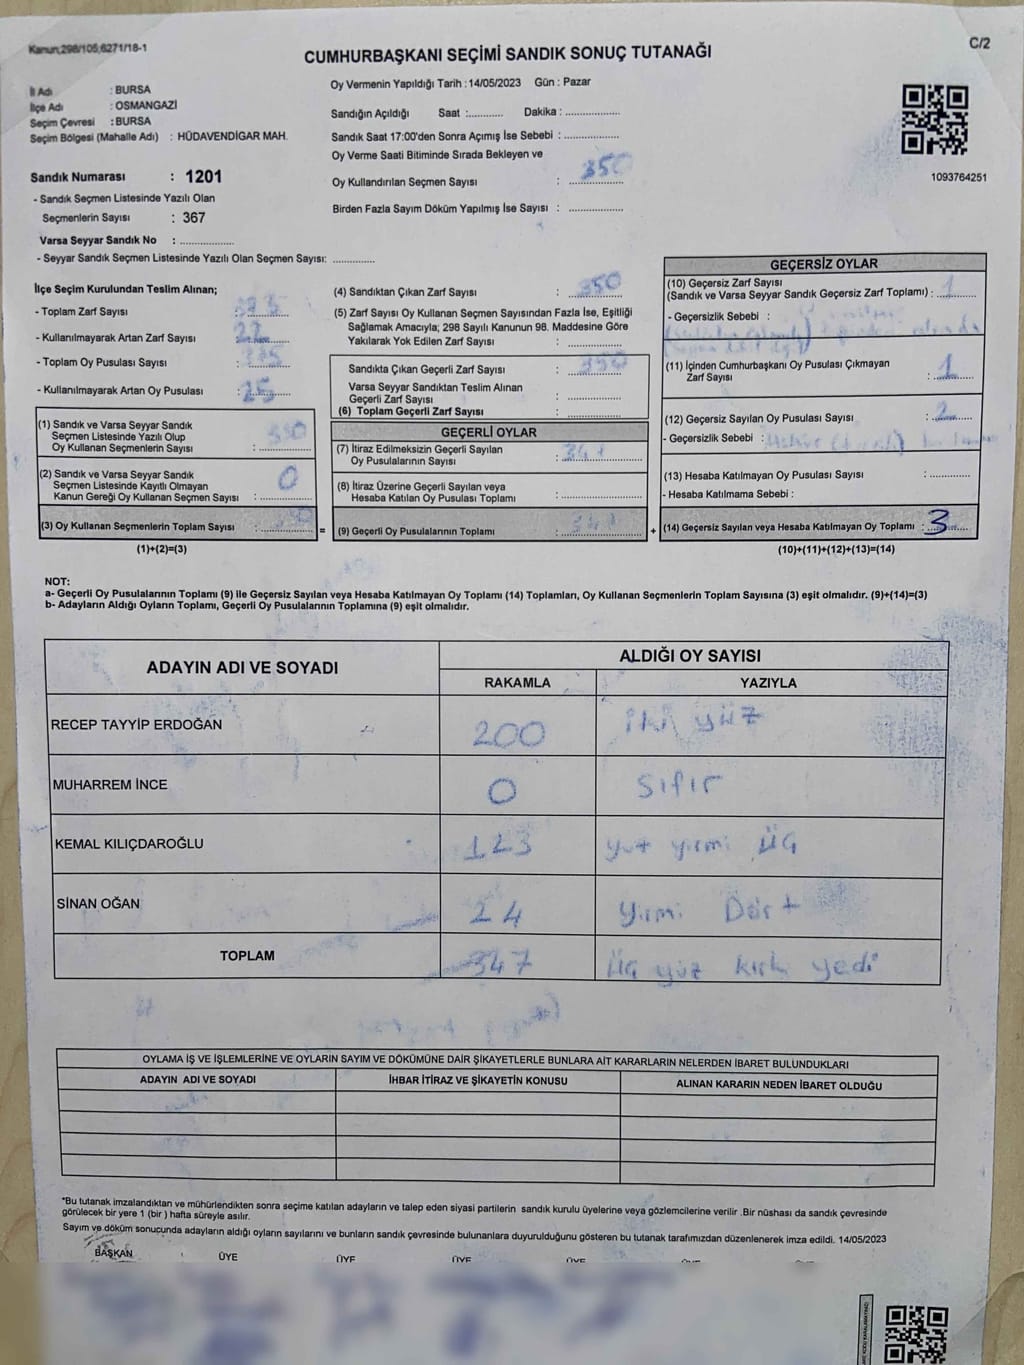 Kanun;298/105;6271/18-1
C/2
CUMHURBAŞKANI SEÇİMİ SANDIK SONUÇ TUTANAĞI
İl Adı : BURSA
İlçe Adı : OSMANGAZİ
Seçim Çevresi : BURSA
Seçim Bölgesi (Mahalle Adı) : HÜDAVENDİGAR MAH.
Sandık Numarası : 1201
- Sandık Seçmen Listesinde Yazılı Olan
Seçmenlerin Sayısı : 367
Varsa Seyyar Sandık No : ................
- Seyyar Sandık Seçmen Listesinde Yazılı Olan Seçmen Sayısı: ............
Oy Vermenin Yapıldığı Tarih : 14/05/2023 Gün : Pazar
Sandığın Açıldığı Saat :........... Dakika : ................
Sandık Saat 17:00'den Sonra Açımış İse Sebebi : ................
Oy Verme Saati Bitiminde Sırada Bekleyen ve
Oy Kullandırılan Seçmen Sayısı : 350
Birden Fazla Sayım Döküm Yapılmış İse Sayısı : ................
1093764251
İlçe Seçim Kurulundan Teslim Alınan;
- Toplam Zarf Sayısı :
- Kullanılmayarak Artan Zarf Sayısı :
- Toplam Oy Pusulası Sayısı :
- Kullanılmayarak Artan Oy Pusulası : 25
(1) Sandık ve Varsa Seyyar Sandık
Seçmen Listesinde Yazılı Olup
Oy Kullanan Seçmenlerin Sayısı : 350
(2) Sandık ve Varsa Seyyar Sandık
Seçmen Listesinde Kayıtlı Olmayan
Kanun Gereği Oy Kullanan Seçmen Sayısı : 0
(3) Oy Kullanan Seçmenlerin Toplam Sayısı : =
(1)+(2)=(3)
(4) Sandıktan Çıkan Zarf Sayısı : 350
(5) Zarf Sayısı Oy Kullanan Seçmen Sayısından Fazla İse, Eşitliği
Sağlamak Amacıyla; 298 Sayılı Kanunun 98. Maddesine Göre
Yakılarak Yok Edilen Zarf Sayısı : ................
Sandıkta Çıkan Geçerli Zarf Sayısı : 350
Varsa Seyyar Sandıktan Teslim Alınan
Geçerli Zarf Sayısı : ................
(6) Toplam Geçerli Zarf Sayısı : ................
GEÇERLİ OYLAR
(7) İtiraz Edilmeksizin Geçerli Sayılan
Oy Pusulalarının Sayısı : 347
(8) İtiraz Üzerine Geçerli Sayılan veya
Hesaba Katılan Oy Pusulası Toplamı : ................
(9) Geçerli Oy Pusulalarının Toplamı : 347 +
GEÇERSİZ OYLAR
(10) Geçersiz Zarf Sayısı
(Sandık ve Varsa Seyyar Sandık Geçersiz Zarf Toplamı) :
- Geçersizlik Sebebi :
(11) İçinden Cumhurbaşkanı Oy Pusulası Çıkmayan
Zarf Sayısı : 1
(12) Geçersiz Sayılan Oy Pusulası Sayısı : 2
- Geçersizlik Sebebi :
(13) Hesaba Katılmayan Oy Pusulası Sayısı : ............
- Hesaba Katılmama Sebebi :
(14) Geçersiz Sayılan veya Hesaba Katılmayan Oy Toplamı : 3
(10)+(11)+(12)+(13)=(14)
NOT:
a- Geçerli Oy Pusulalarının Toplamı (9) ile Geçersiz Sayılan veya Hesaba Katılmayan Oy Toplamı (14) Toplamları, Oy Kullanan Seçmenlerin Toplam Sayısına (3) eşit olmalıdır. (9)+(14)=(3)
b- Adayların Aldığı Oyların Toplamı, Geçerli Oy Pusulalarının Toplamına (9) eşit olmalıdır.
ADAYIN ADI VE SOYADI
ALDIĞI OY SAYISI
RAKAMLA YAZIYLA
RECEP TAYYİP ERDOĞAN 200 iki yüz
MUHARREM İNCE 0 Sıfır
KEMAL KILIÇDAROĞLU 123 yüz yirmi üç
SİNAN OĞAN 24 Yirmi Dört
TOPLAM 347 üç yüz kırk yedi
OYLAMA İŞ VE İŞLEMLERİNE VE OYLARIN SAYIM VE DÖKÜMÜNE DAİR ŞİKAYETLERLE BUNLARA AİT KARARLARIN NELERDEN İBARET BULUNDUKLARI
ADAYIN ADI VE SOYADI İHBAR İTİRAZ VE ŞİKAYETİN KONUSU ALINAN KARARIN NEDEN İBARET OLDUĞU
*Bu tutanak imzalandıktan ve mühürlendikten sonra seçime katılan adayların ve talep eden siyasi partilerin sandık kurulu üyelerine veya gözlemcilerine verilir .Bir nüshası da sandık çevresinde
görülecek bir yere 1 (bir ) hafta süreyle asılır.
Sayım ve döküm sonucunda adayların aldığı oyların sayılarını ve bunların sandık çevresinde bulunanlara duyurulduğunu gösteren bu tutanak tarafımızdan düzenlenerek imza edildi. 14/05/2023
BAŞKAN ÜYE ÜYE ÜYE ÜYE